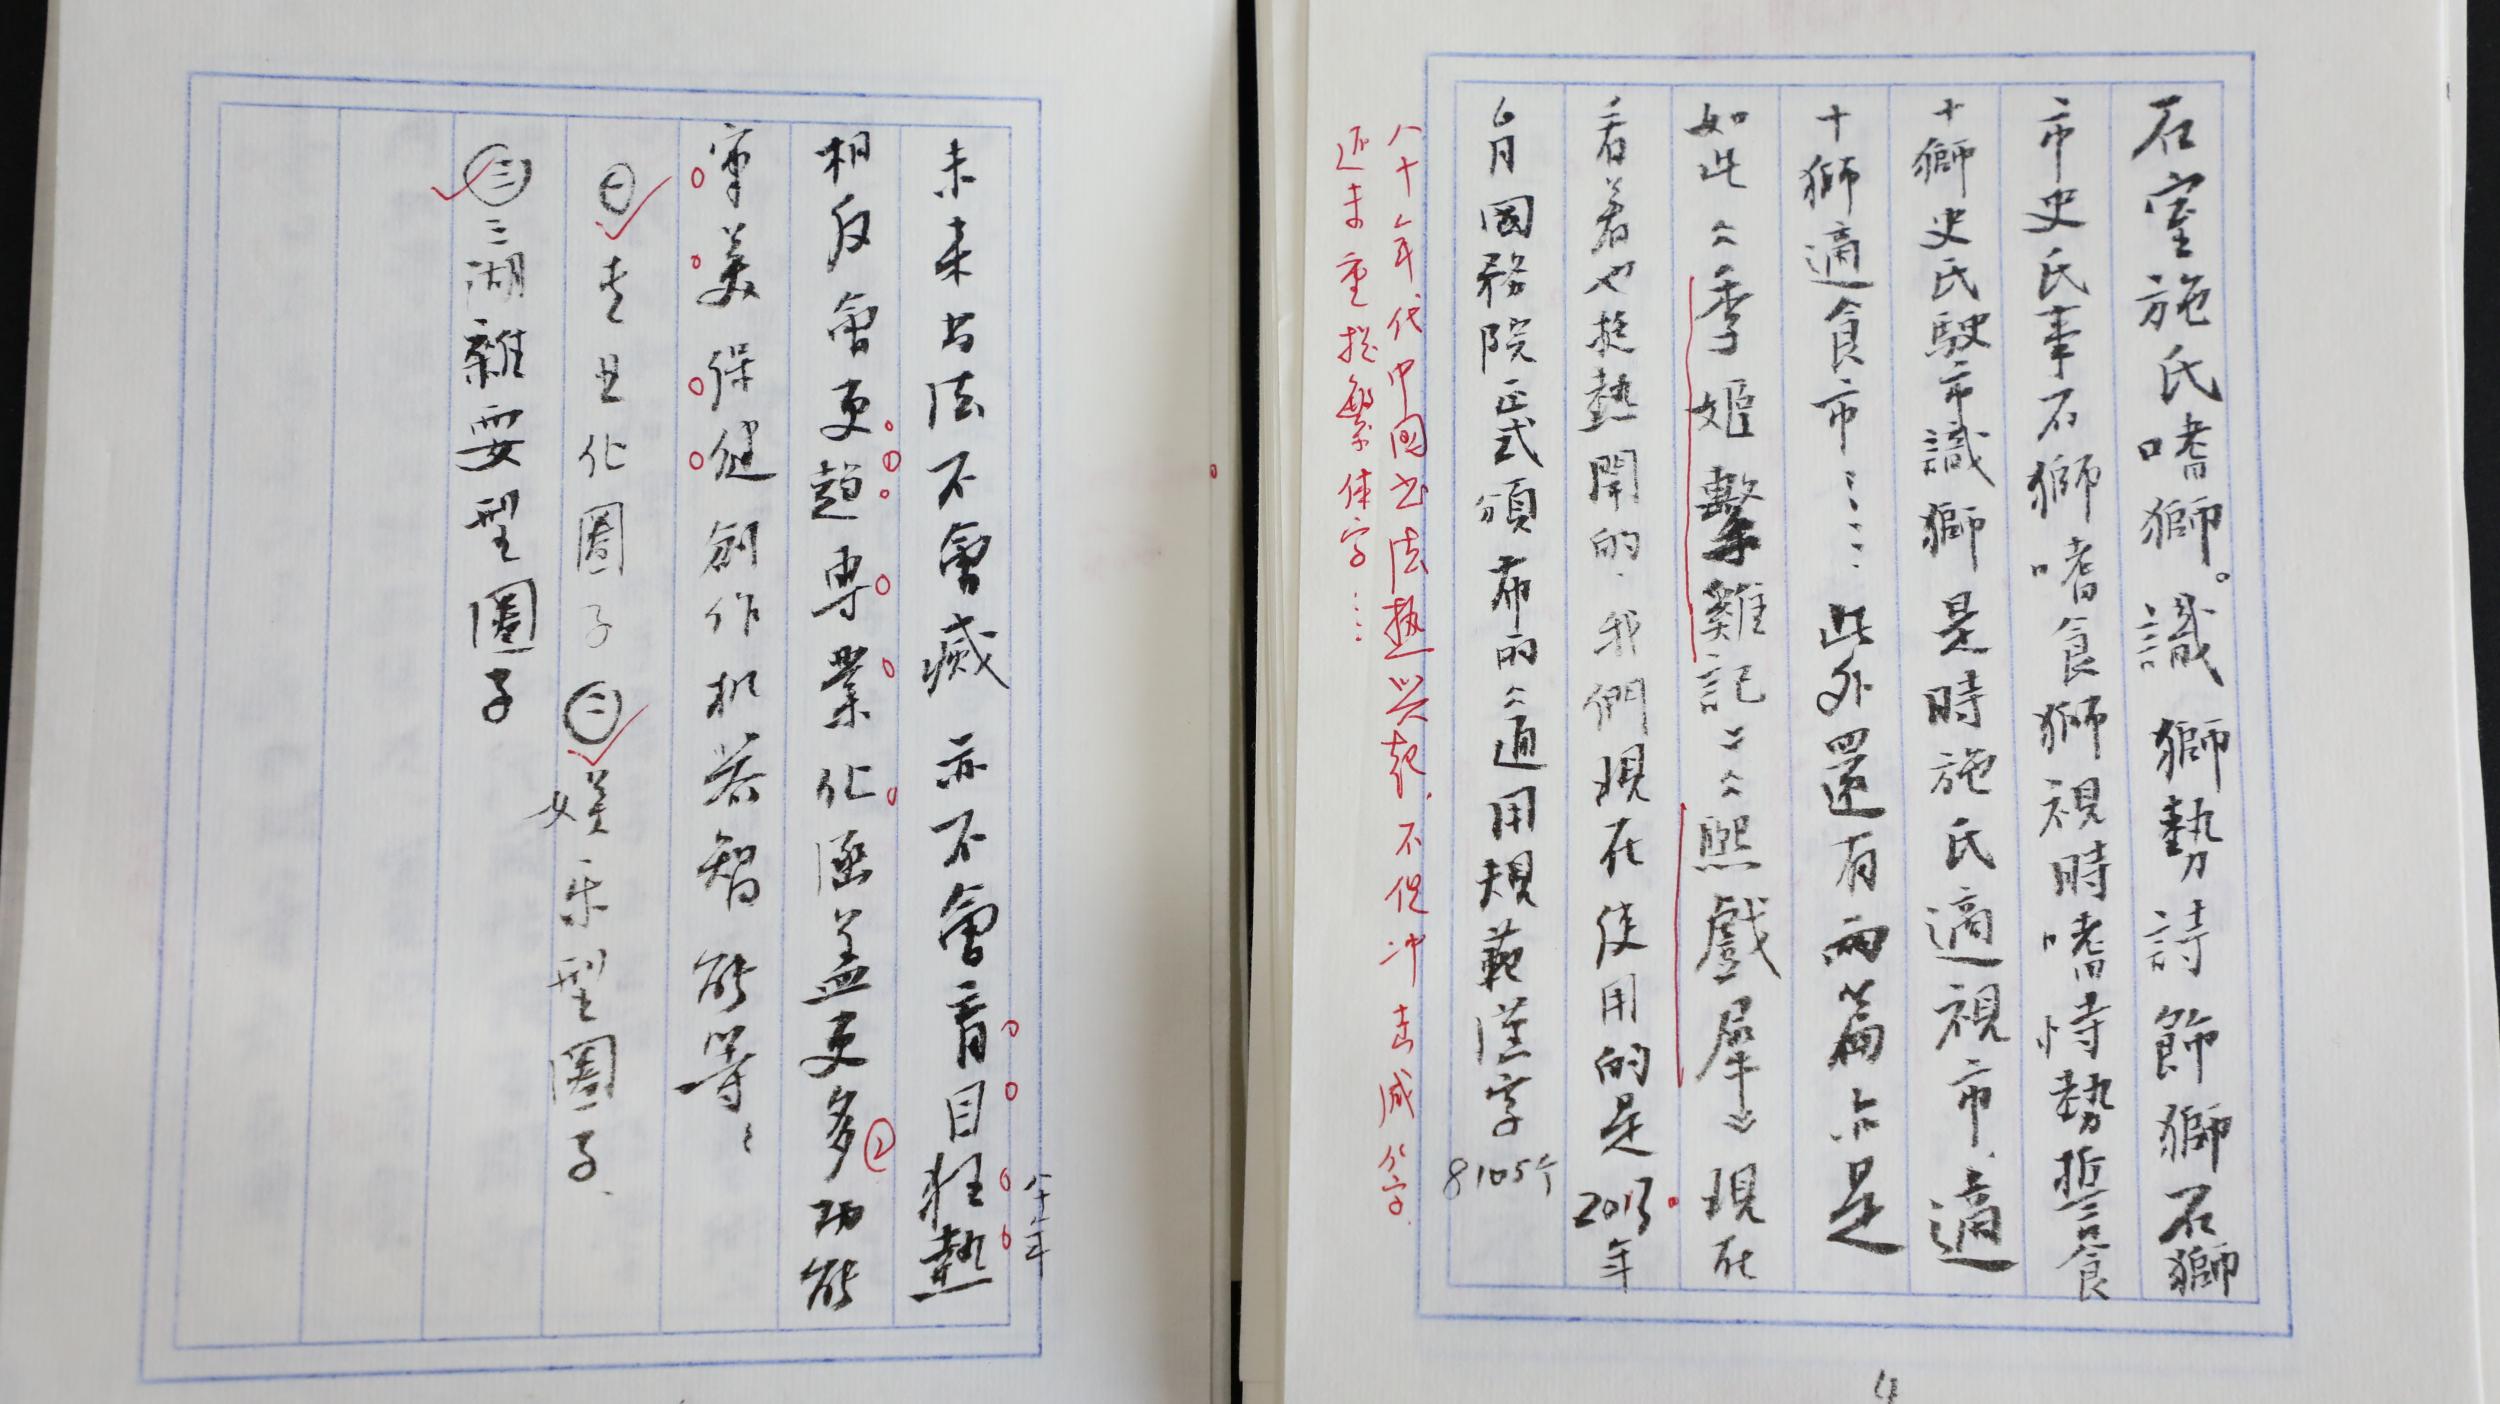 石室施氏嗜獅。識獅勢詩飾獅石獅
市史氏事石獅嗜食獅視時嗜恃勢誓食
十獅史氏駛市識獅是時施氏適視市、適
十獅適食市……此外還有兩篇亦是
如此《季姬擊雞記》《熙戲犀》現在
看着也挺熱鬧的、我們現在使用的是2013年
6月國務院正式頒布的《通用規範漢字
8105个
八十年代中国书法热兴起、不但冲击咸 字、
近 重 繁体字……
4
未来书法不會滅亦不會盲目狂熱
八十年
相反會更趨專業化涵盖更多功能
2
審美保健創作机器智能等、
㊀ 化圈子㊁娱乐型圈子、
㊂江湖雜耍型圈子